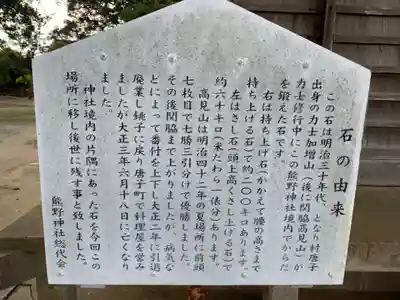 石の由来
この石は明治三十年代、となり村唐子
出身の力士加増山(後に関脇高見山)が
力士修行中にこの熊野神社境内でからだ
を鍛えた石です。
右は持ち上げ石(かかえて腰の高さまで
持ち上げる石)で約二〇〇キロあります。
左はさし石(頭上高くさし上げる石)で
約六十キロ(米たわら一俵分)あります。
高見山は明治四十二年の夏場所に前頭
七枚目で七勝三引分けで優勝しました。
その後関脇まで上がりましたが、病気な
どによって番付を上下し大正二年に引退
廃業し銚子に戻り唐子町で料理屋を営み
ましたが大正三年六月十八日に亡くなり
ました。
神社境内の片隅にあった石を今回この
場所に移し後世に残す事と致しました。
熊野神社総代会